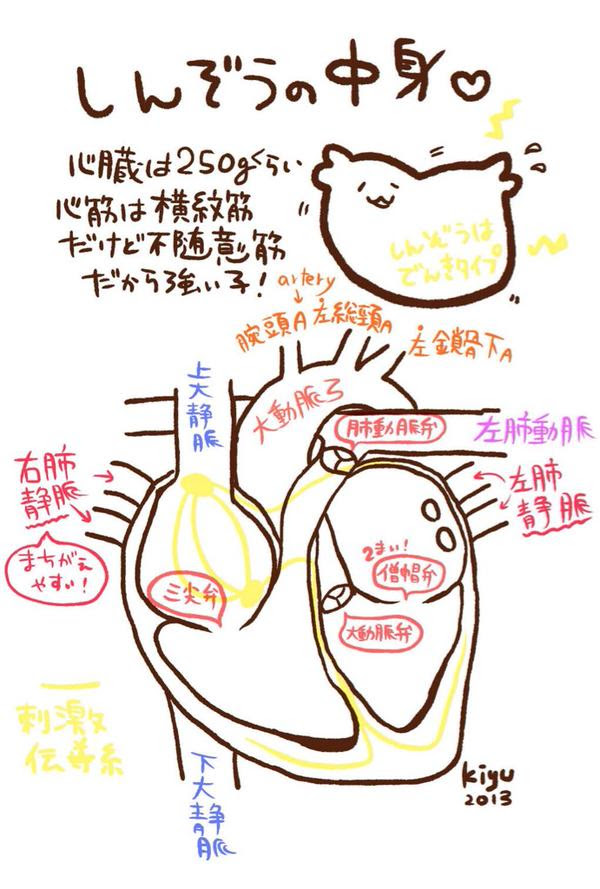 しんぞうの中身♡
心臓は250gくらい
心筋は横紋筋
だけど不随意筋
だから強い子!
しんぞうは
でんきタイプ
artery
腕頭A 左総頸A
左鎖骨下A
上大静脈
大動脈弓
肺動脈弁
左肺動脈
右肺
静脈
左肺
静脈
まちがえ
やすい!
2まい!
僧帽弁
三尖弁
大動脈弁
刺激
伝導系
下大静脈
kiyu
2013